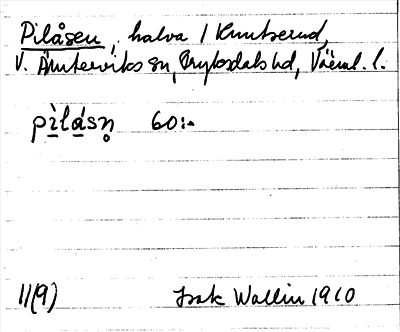 Pilåsen, halva / Knutserud,
V. Ämterviks sn, Fryksdals hd, Värml. l.
pìlásn̥ 60:-
11(9) Isak Wallin 1910